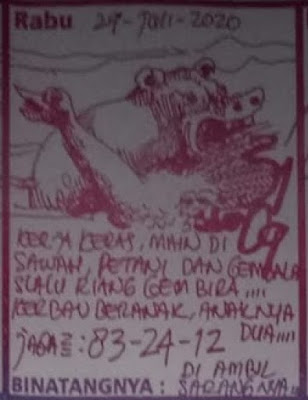 Rabu 29-Juli-2020
KERJA KERAS, MAIN DI
SAWAH, PETANI DAN GEMBALA
SLALU RIANG GEMBIRA,,,,
KERBAU BERANAK, ANAKNYA
DUA,,,,
JAGA²: 83-24-12
DI AMBIL
BINATANGNYA: SARANGNYA,,